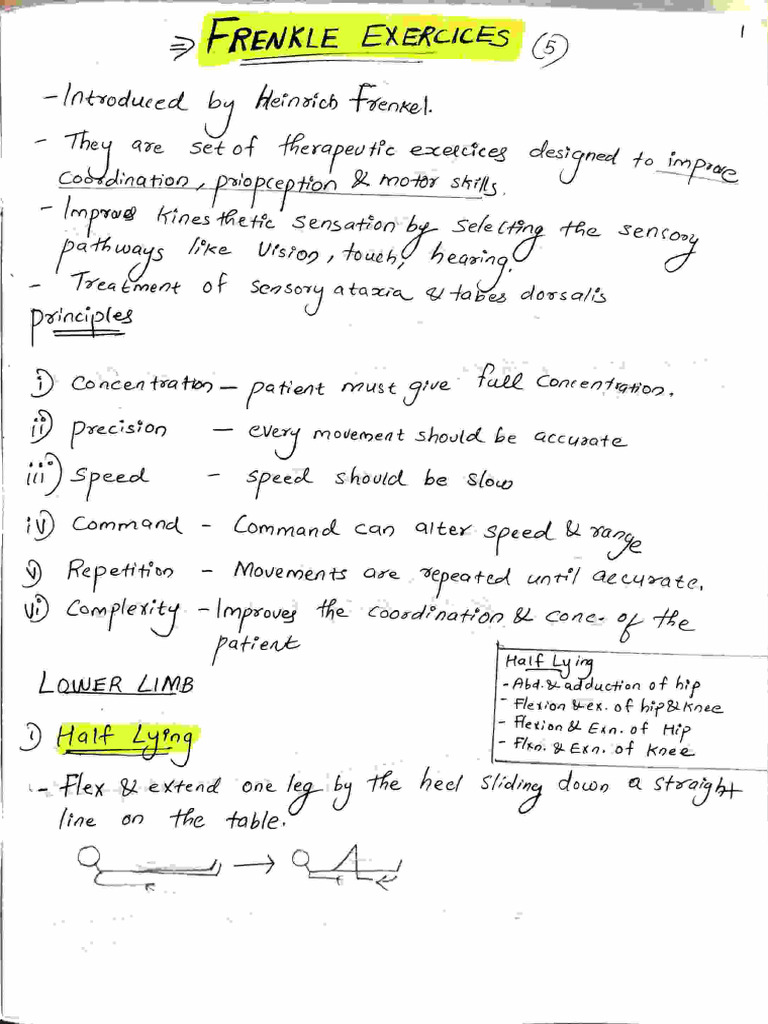 ⇒ FRENKLE EXERCICES (5)
1
- Introduced by Heinrich Frenkel.
- They are set of therapeutic exercices designed to improve
coordination, priopception & motor skills.
- Improves kinesthetic sensation by selecting the sensory
pathways like vision, touch, hearing.
- Treatment of sensory ataxia & tabes dorsalis
Principles
i) Concentration - patient must give full concentration.
ii) Precision - every movement should be accurate
iii) Speed - speed should be slow
iv) Command - Command can alter speed & range
v) Repetition - Movements are repeated until accurate.
vi) Complexity - Improves the coordination & conc. of the
patient
LOWER LIMB
Half Lying
- Abd. & adduction of hip
- Flexion & ex. of hip & knee
- Flexion & Exn. of Hip
- Flxn. & Exn. of Knee
i) Half Lying
- Flex & extend one leg by the heel sliding down a straight
line on the table.